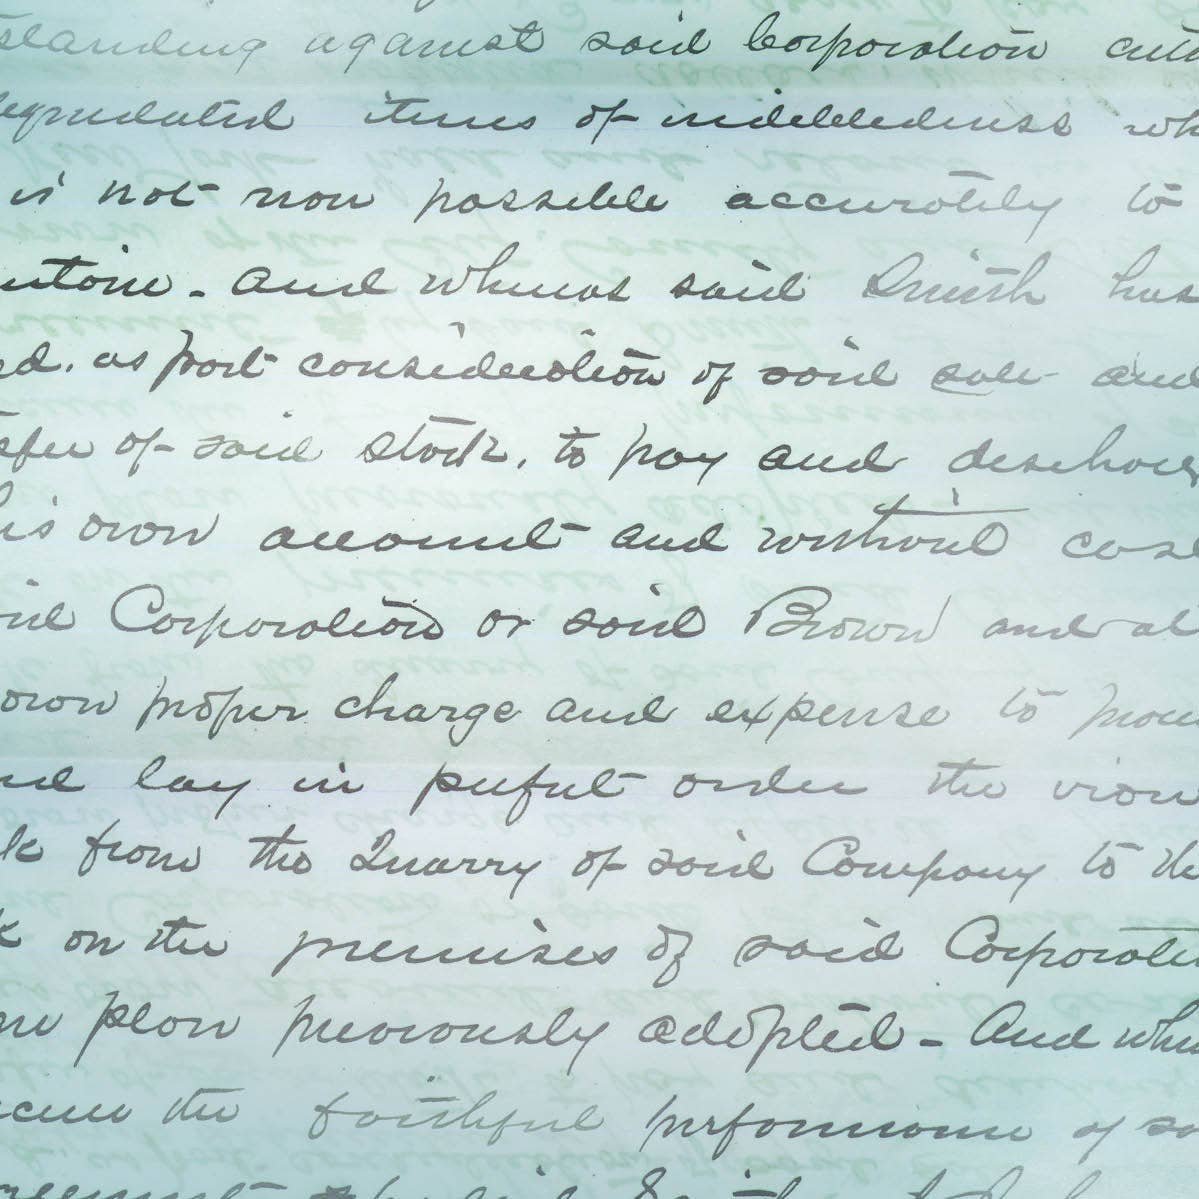 standing against said Corporation and
is not now possible accurately to
and whereas said Smith has
ed. as part consideration of said sale and
sfer of said stock, to pay and discharg
his own account and without cost
aid Corporation or said Brown and at
own proper charge and expense to
nd lay in perfect order the iron
k from the Quarry of said Company to the
k on the premises of said Corporatio
plan previously adopted - And whe
ecure the faithful performance of sa